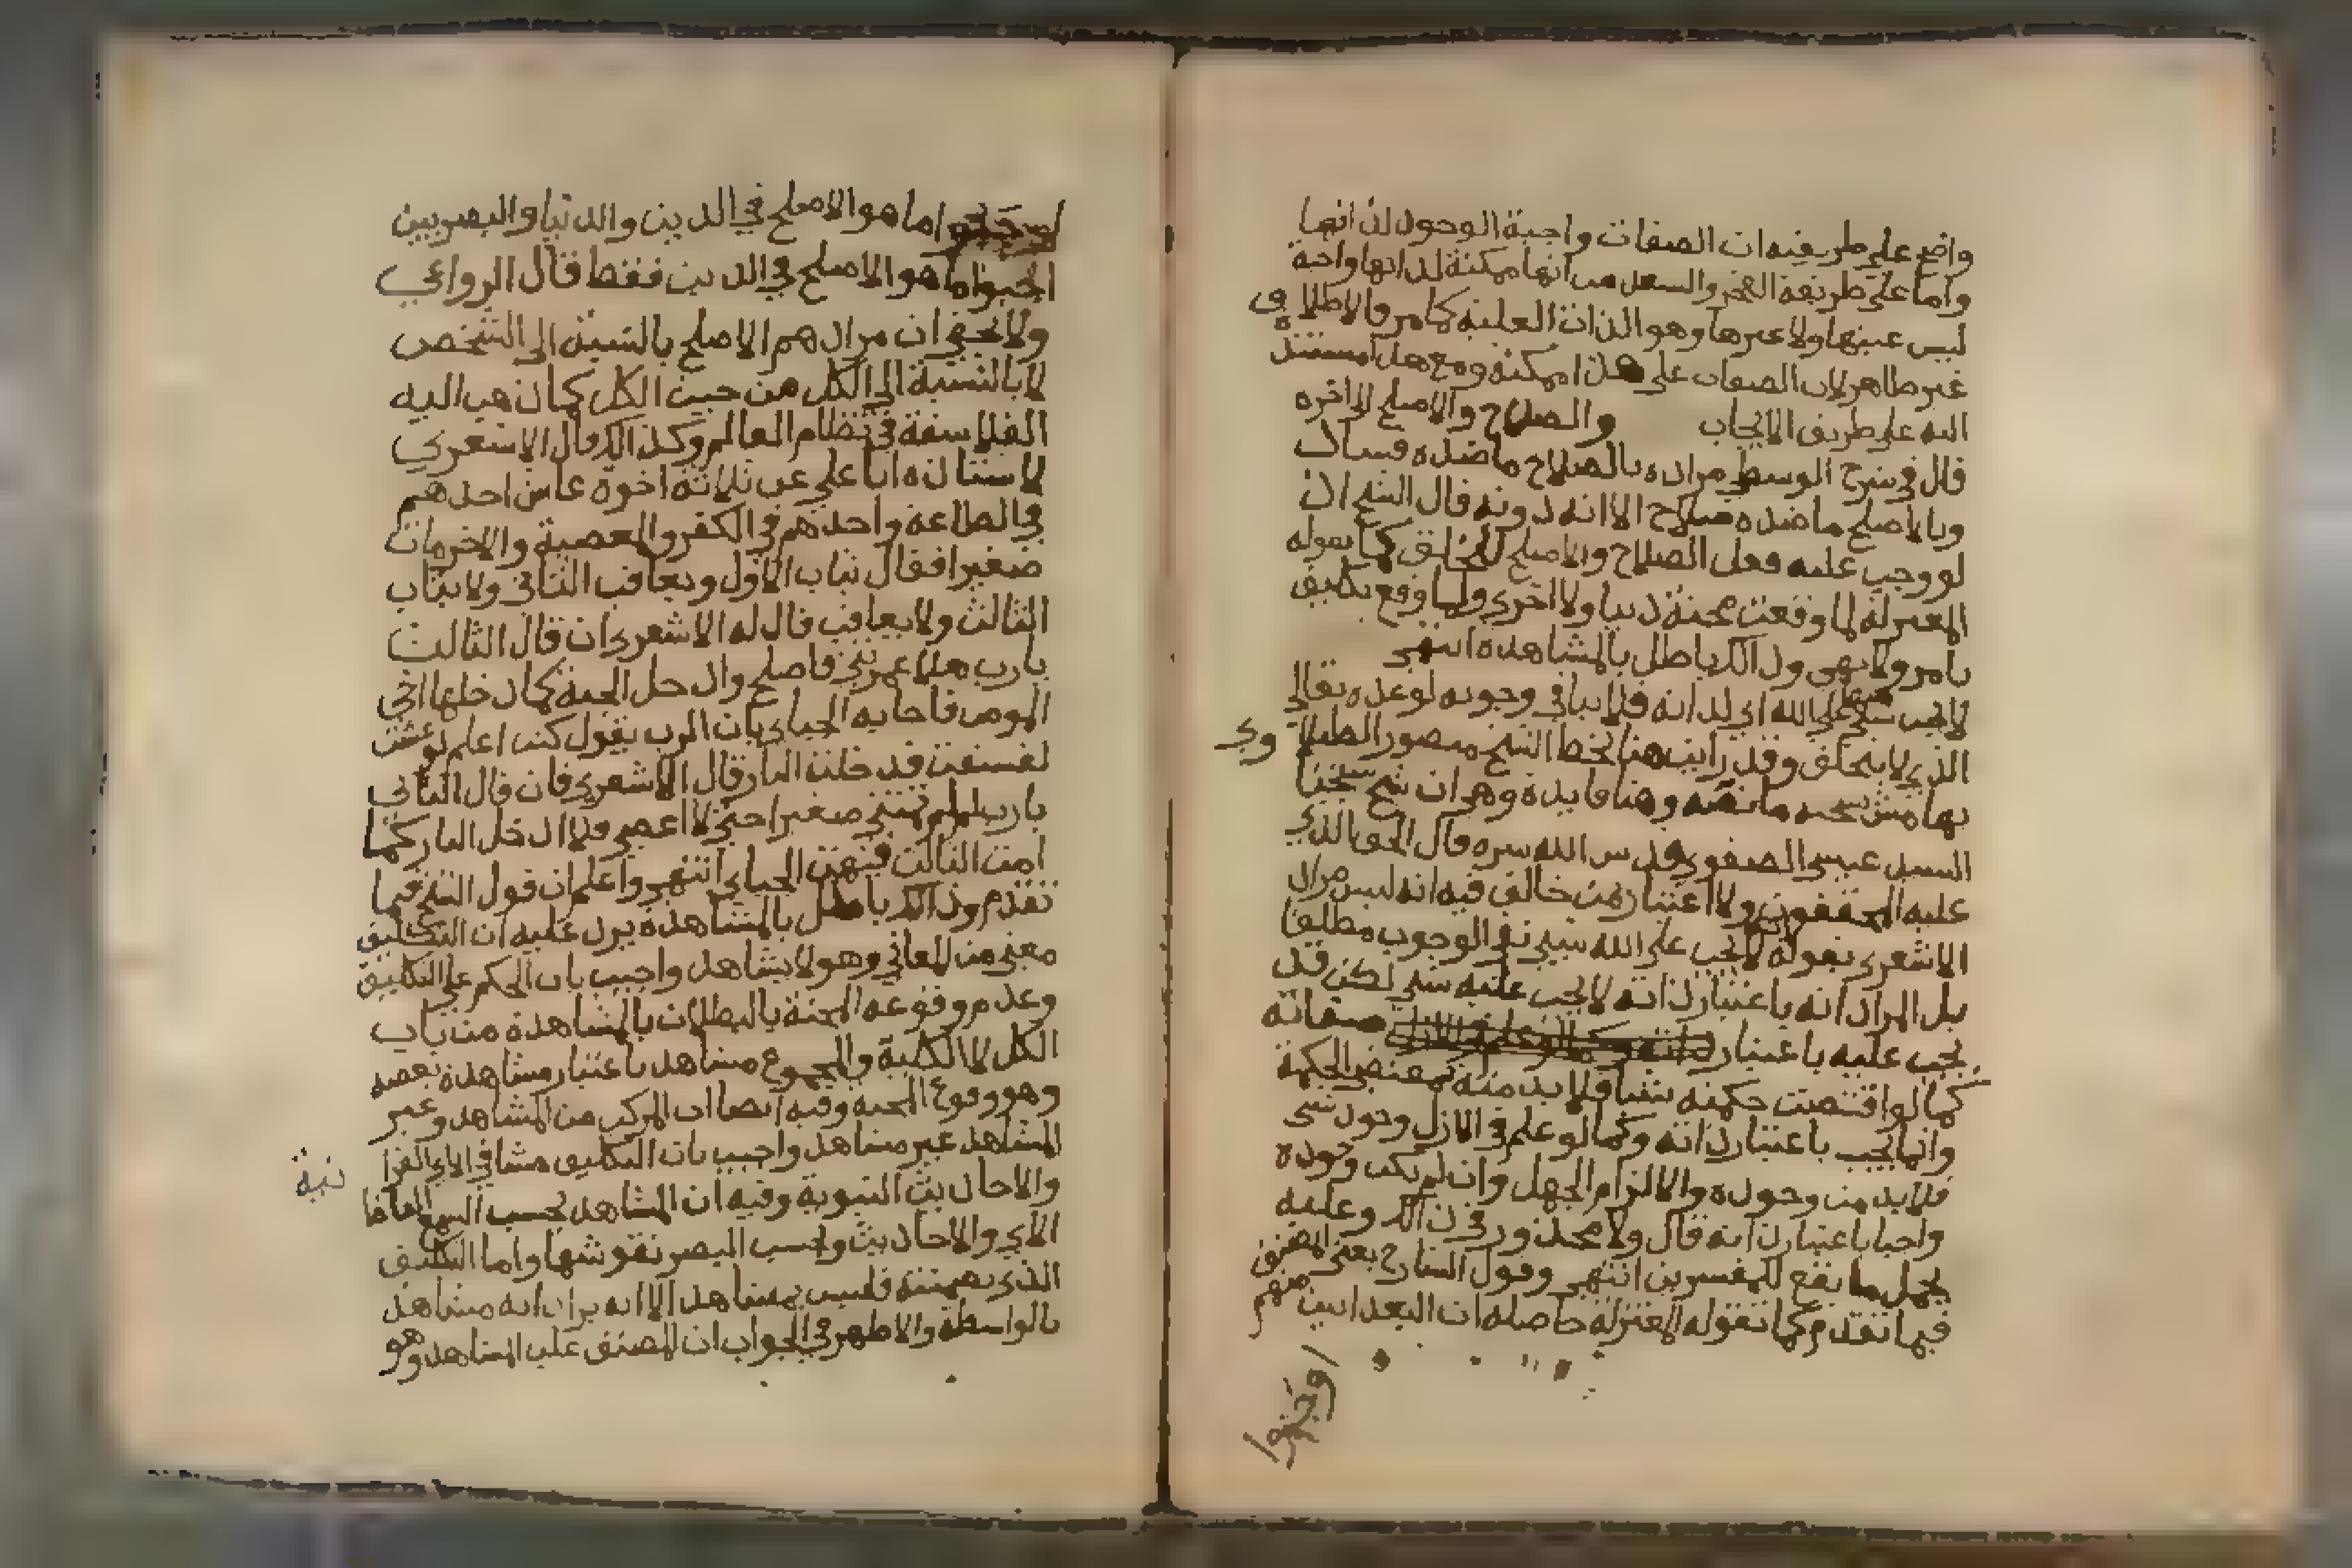 واضح على طريقته ان الصفات واجبة الوجود لذاتها
واما على طريقة الفخر والسعد من انها ممكنة لذاتها واجبة
ليس عينها ولا غيرها وهو الذات العلية كما مر فالاطلاق
غير ظاهر لان الصفات على هذا ممكنة ومع هذا مستندة
اليه على طريق الايجاب والصلاح والاصلح الى اخره
قال في شرح الوسطى مراده بالصلاح ما ضده فساد
وبالاصلح ما ضده صلاح الا انه دونه قال الشيخ ان
لو وجب عليه فعل الصلاح والاصلح للخلق كما يقوله
المعتزلة لما وقعت محنة دنيا ولا اخرى ولما وقع تكليف
بامر ولا نهي وذلك باطل بالمشاهدة انتهى
لا يجب شي على الله اي لذاته فلا ينافي وجوبه لوعده تعالى
الذي لا يتخلف وقد رايت هنا بخط الشيخ منصور الطبلاوي
بهامش نسخته ما نصه وهنا فايدة وهي ان شيخ شيخنا
السيد عيسى الصفوي قدس الله سره قال الحق الذي
عليه المحققون ولا اعتبار من خالف فيه انه ليس مراد
الاشعري بقوله لا يجب على الله شيء نفي الوجوب مطلقا
بل المراد انه باعتبار ذاته لا يجب عليه شي لكن قد
يجب عليه باعتبار صفاته
كما لو اقتضت حكمته شيا فلا بد منه بمقتضى الحكمة
وانما يجب باعتبار ذاته وكما لو علم في الازل وجود شي
فلا بد من وجوده والا لزام الجهل وان لم يكن وجوده
واجبا باعتبار ذاته قال ولا محذور في ذلك وعليه
يحمل ما يقع للمفسرين انتهى وقول الشارح يعني المصنف
فيما تقدم كما تقوله المعتزلة حاصله ان البغداديين منهم
اوجبوا
اوجبوا ما هو الاصلح في الدين والدنيا والبصريين
اوجبوا ما هو الاصلح في الدين فقط قال الدواني
ولا يخفى ان مرادهم الاصلح بالنسبة الى الشخص
لا بالنسبة الى الكل من حيث الكل كما ذهب اليه
الفلاسفة في نظام العالم وكذلك قال الاشعري
لاستاذه ابا علي عن ثلاثة اخوة عاش احدهم
في الطاعة واحدهم في الكفر والمعصية والاخر مات
صغيرا فقال يثاب الاول ويعاقب الثاني ولا يثاب
الثالث ولا يعاقب قال له الاشعري ان قال الثالث
يا رب هلا عمرتني فاصلح وادخل الجنة كما دخلها اخي
المومن فاجابه الجباي بان الرب يقول كنت اعلم لو عشت
لفسقت فدخلت النار قال الاشعري فان قال الثاني
يا رب لم لم تمتني صغيرا حتى لا اعصي فلا ادخل النار كما
امت الثالث فبهت الجباي انتهى واعلم ان قول الشيخ فيما
تقدم وذلك باطل بالمشاهدة يرد عليه ان التكليف
معنى من المعاني وهو لا يشاهد واجيب بان الحكم على التكليف
وعدم وقوعه المحنة بالبطلان بالمشاهدة من باب
الكل لا الكلية والمجموع مشاهد باعتبار مشاهدة بعضه
وهو وقوع المحنة وفيه ايضا ان المركب من المشاهد وغير
المشاهد غير مشاهد واجيب بان التكليف مشاهد في الاي القرا
نية
والاحاديث النبوية وفيه ان المشاهد بحسب السمع الفاظ
الاي والاحاديث وبحسب البصر نقوشها واما التكليف
الذي تضمنته فليس بمشاهد الا انه يراد انه مشاهد
بالواسطة والاظهر في الجواب ان المصنف غلب المشاهد وهو